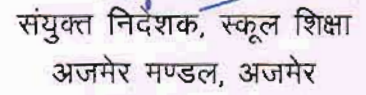 संयुक्त निदेशक, स्कूल शिक्षा
अजमेर मण्डल, अजमेर